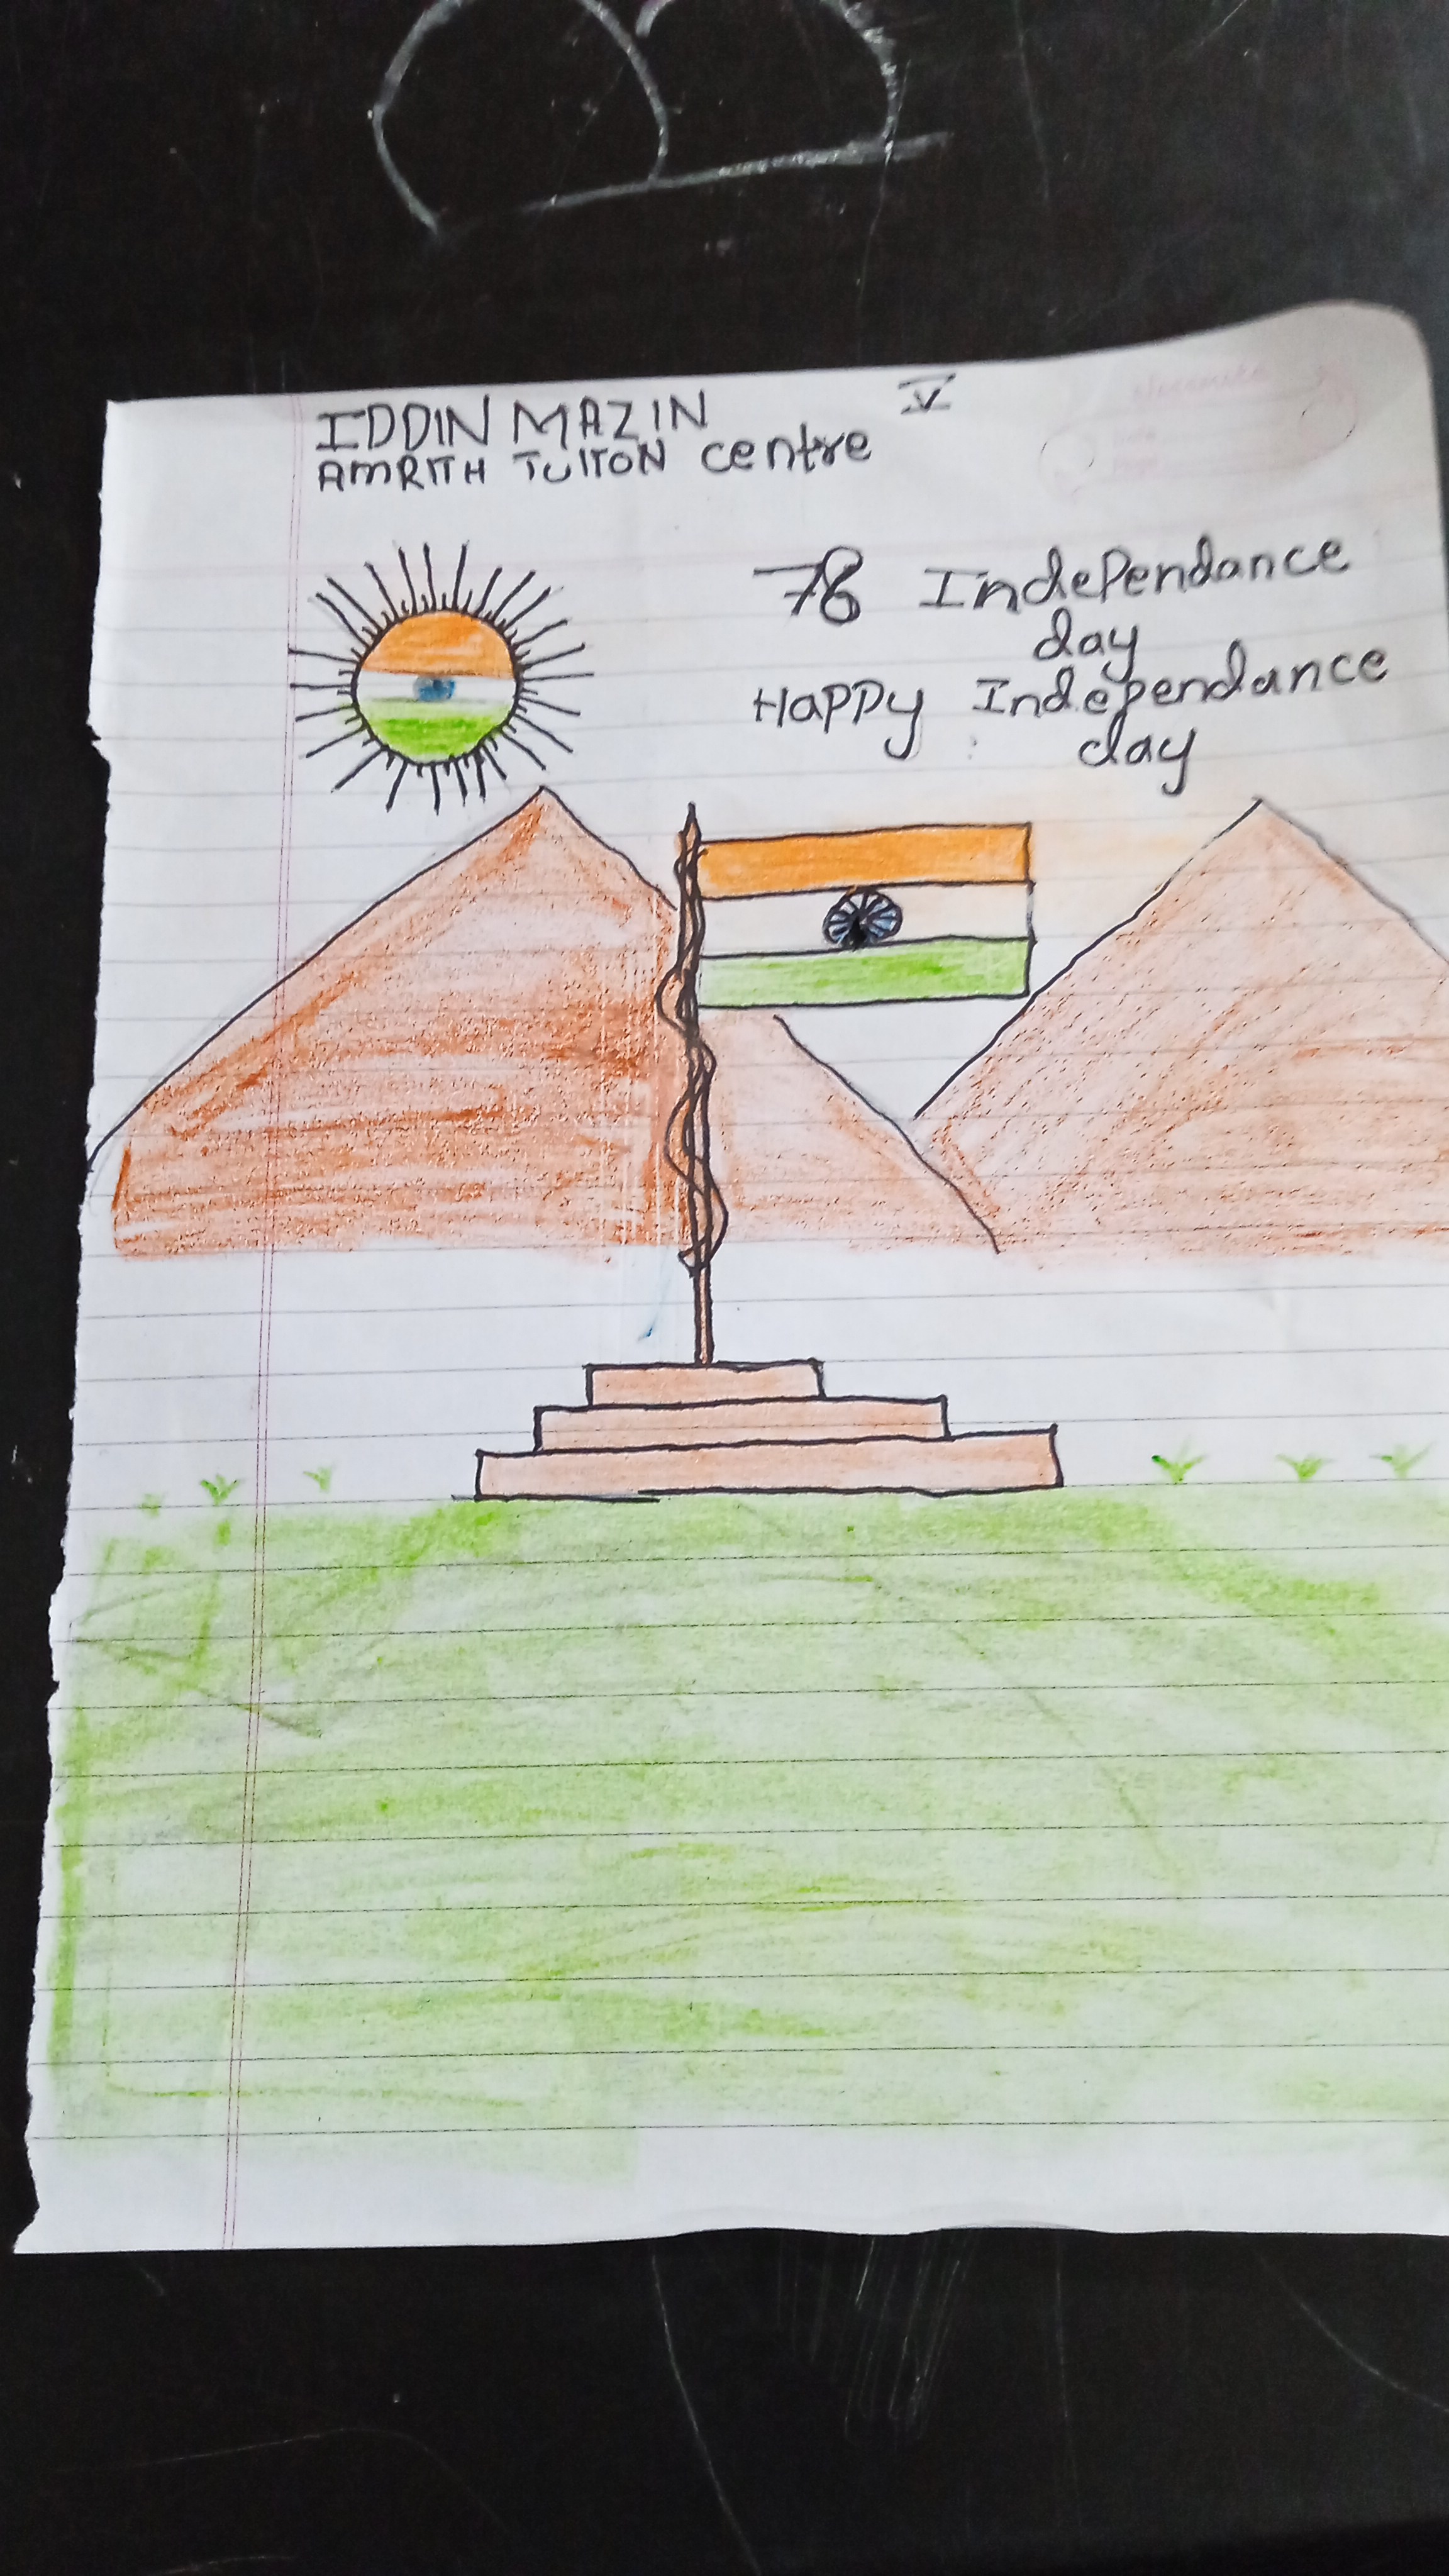 IDDIN MAZIN V
AMRITH TUITON centre
78 Independance
day
Happy Independance
day